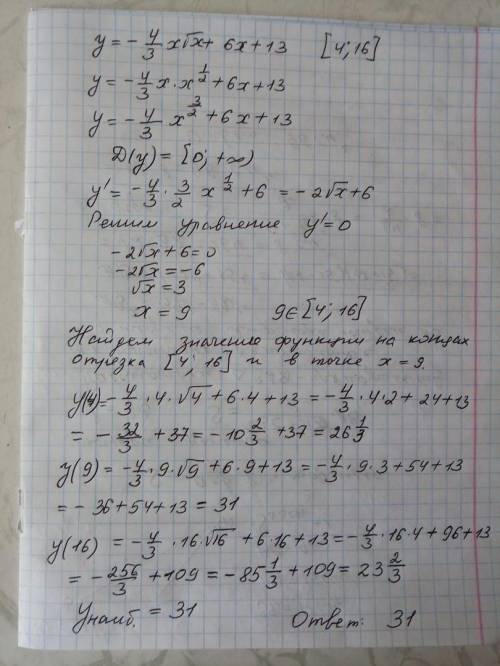 y = - 4/3 x√x + 6x + 13 [4; 16]
y = - 4/3 x · x^(1/2) + 6x + 13
y = - 4/3 x^(3/2) + 6x + 13
D(y) = [0; +∞)
y' = - 4/3 · 3/2 x^(1/2) + 6 = - 2√x + 6
Решим уравнение y' = 0
- 2√x + 6 = 0
- 2√x = - 6
√x = 3
x = 9 9 ∈ [4; 16]
Найдем значение функции на концах
отрезка [4; 16] и в точке x = 9.
y(4) = - 4/3 · 4 · √4 + 6 · 4 + 13 = - 4/3 · 4 · 2 + 24 + 13
= - 32/3 + 37 = - 10 2/3 + 37 = 26 1/3
y(9) = - 4/3 · 9 · √9 + 6 · 9 + 13 = - 4/3 · 9 · 3 + 54 + 13
= - 36 + 54 + 13 = 31
y(16) = - 4/3 · 16 · √16 + 6 · 16 + 13 = - 4/3 · 16 · 4 + 96 + 13
= - 256/3 + 109 = - 85 1/3 + 109 = 23 2/3
Yнаиб. = 31 Ответ: 31